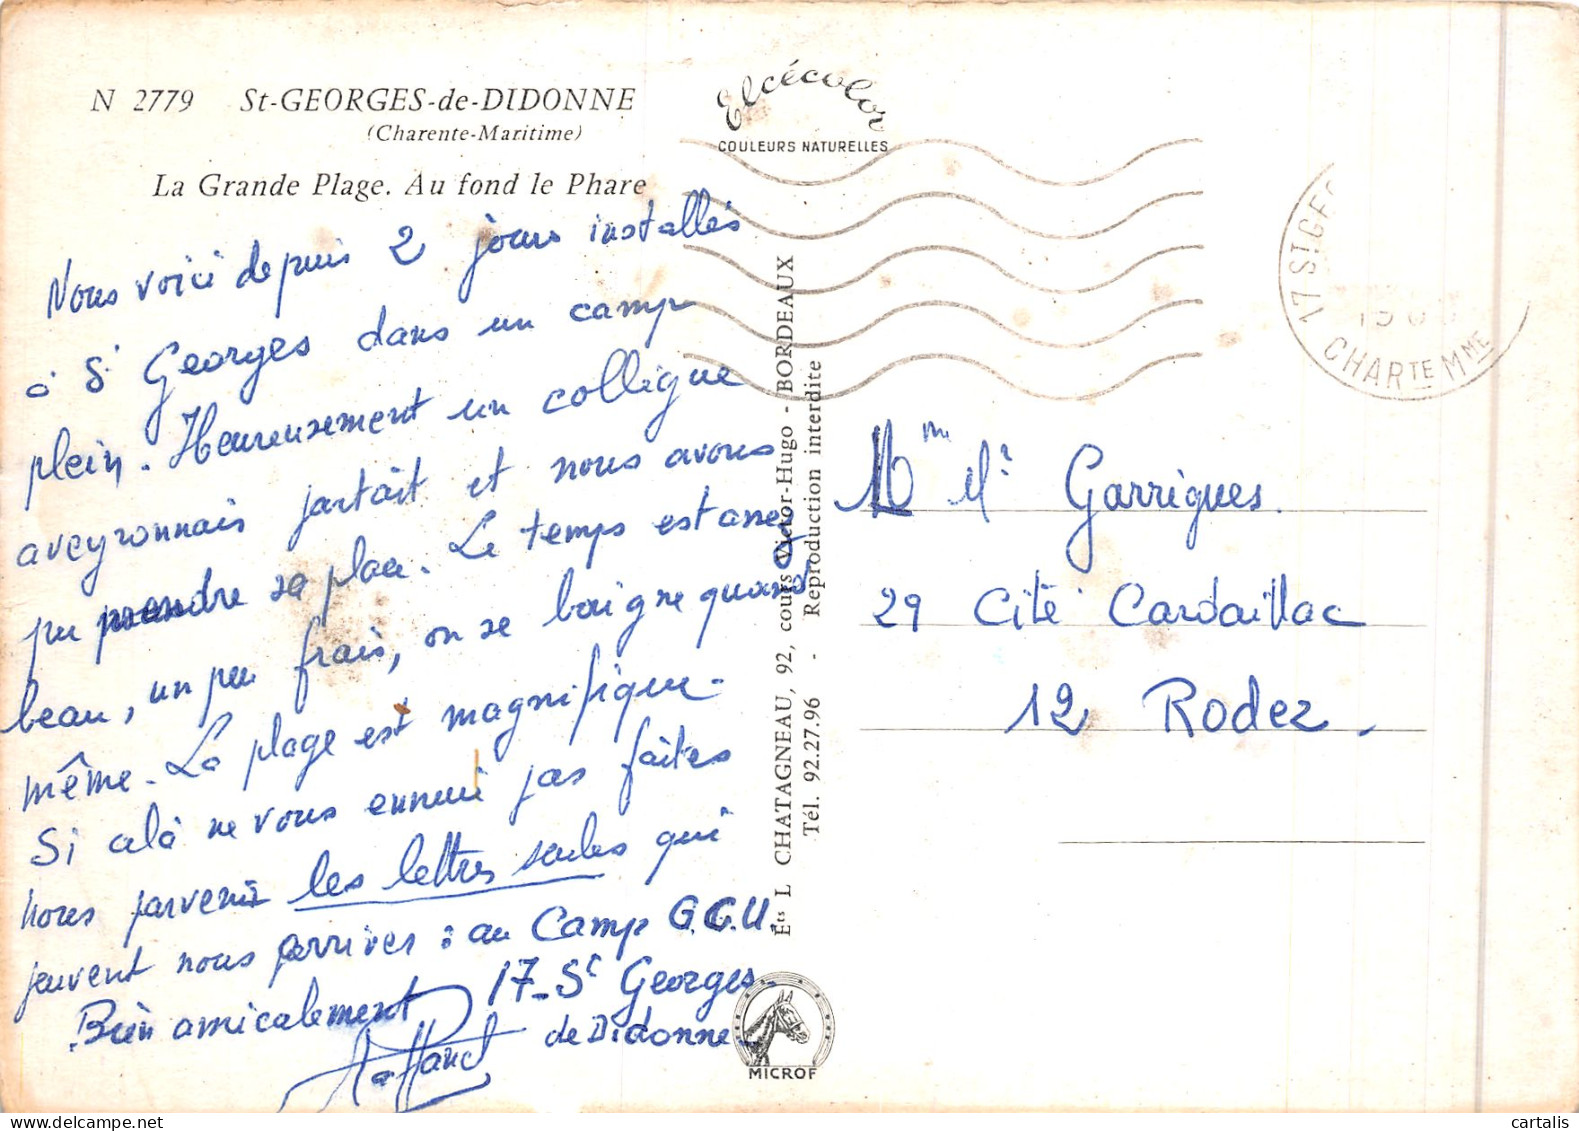 N 2779 St-GEORGES-de-DIDONNE
(Charente-Maritime)
La Grande Plage. Au fond le Phare
Elcécolor
COULEURS NATURELLES
17 ST GEO
CHARTE MME
Nous voici depuis 2 jours installés
à St Georges dans un camp
plein. Heureusement un collègue
aveyronnais partait et nous avons
pu prendre sa place. Le temps est assez
beau, un peu frais, on se baigne quand
même. La plage est magnifique.
Si celà ne vous ennuie pas faites
nous parvenir les lettres seules qui
peuvent nous arriver : au Camp G.C.U.
17-St Georges
de Didonne
Bien amicalement
Ets L CHATAGNEAU, 92, cours Victor-Hugo - BORDEAUX
Tél. 92.27.96 - Reproduction interdite
MICROF
Mme Mr Garrigues
29 Cité Cardaillac
12 Rodez.
cartalis